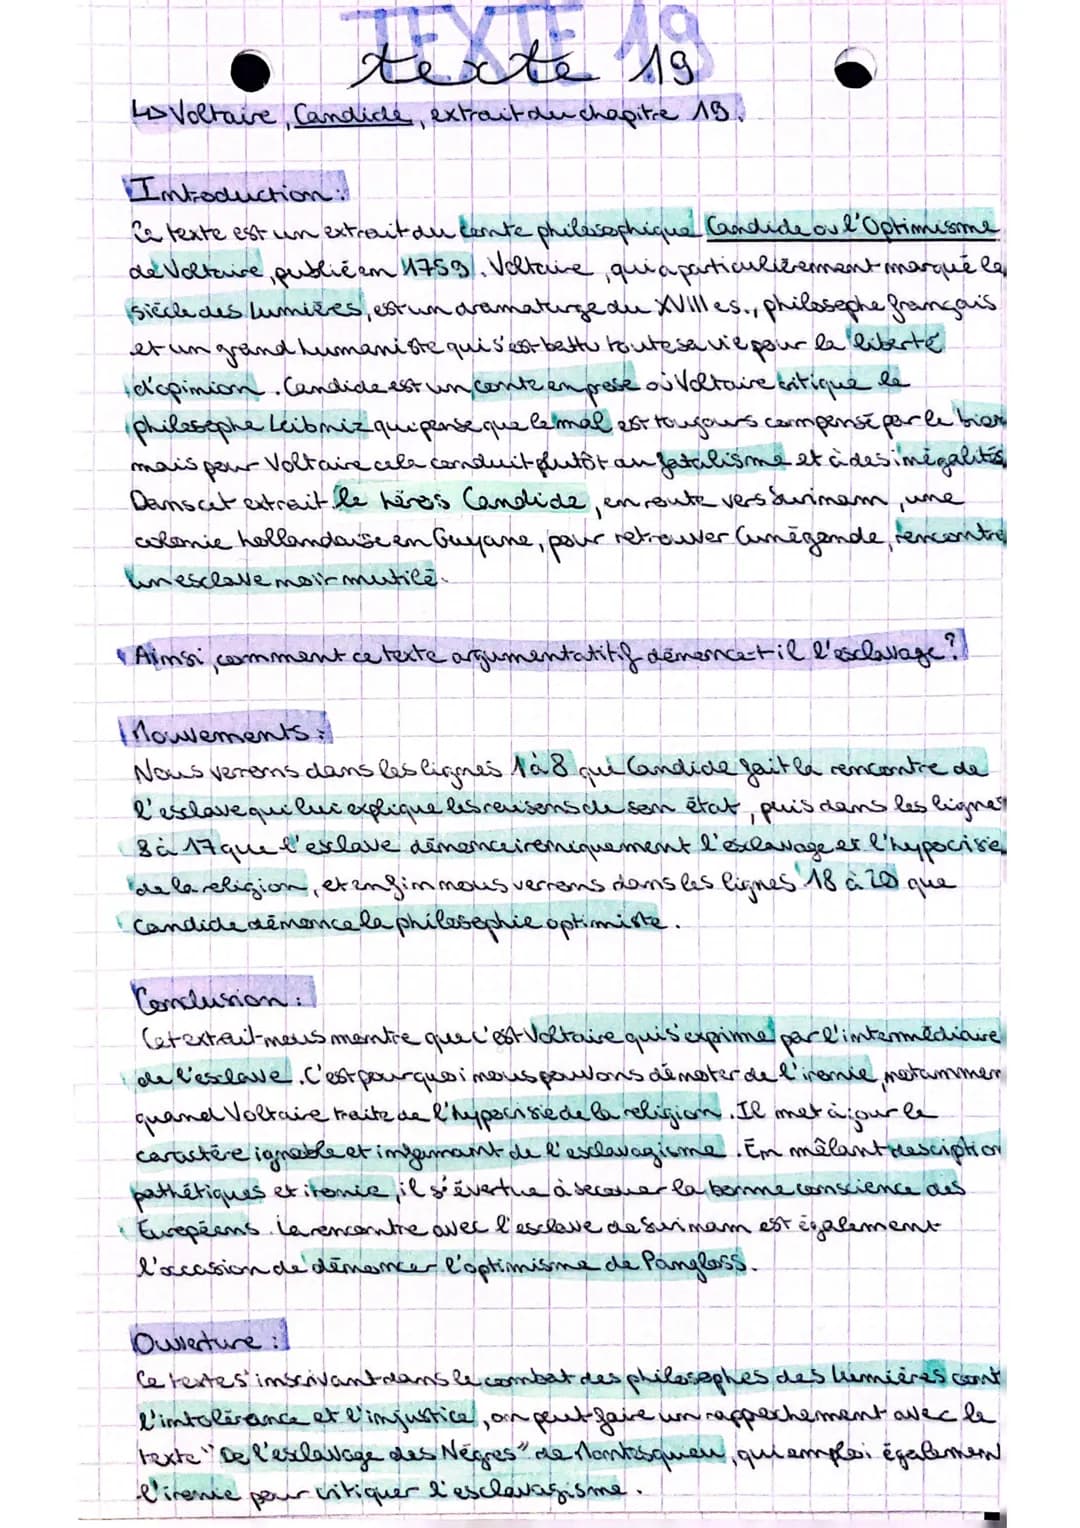 TEXTE 19
texte 19
↳ Voltaire, Candide, extrait du chapitre 19.
Introduction :
Ce texte est un extrait du conte philosophique Candide ou l'Optimisme
de Voltaire, publié en 1759. Voltaire, qui a particulièrement marqué le
siècle des Lumières, est un dramaturge du XVIII es., philosophe français
et un grand humaniste qui s'est battu toute sa vie pour la liberté
d'opinion. Candide est un conte en prose où Voltaire critique le
philosophe Leibniz qui pense que le mal est toujours compensé par le bien
mais pour Voltaire cela conduit plutôt au fatalisme et à des inégalités.
Dans cet extrait le héros Candide, en route vers Surinam, une
colonie hollandaise en Guyane, pour retrouver Cunégonde, rencontre
un esclave noir mutilé.
Ainsi, comment ce texte argumentatitif dénonce-t-il l'esclavage ?
Mouvements :
Nous verrons dans les lignes 1 à 8 que Candide fait la rencontre de
l'esclave qui lui explique les raisons de son état, puis dans les lignes
8 à 17 que l'esclave dénonce ironiquement l'esclavage et l'hypocrisie
de la religion, et enfin nous verrons dans les lignes 18 à 20 que
Candide dénonce la philosophie optimiste.
Conclusion :
Cet extrait nous montre que c'est Voltaire qui s'exprime par l'intermédiaire
de l'esclave. C'est pourquoi nous pouvons dénoter de l'ironie, notammen
quand Voltaire traite de l'hypocrisie de la religion. Il met à jour le
caractère ignoble et infamant de l'esclavagisme. En mêlant description
pathétiques et ironie, il s'évertue à secouer la bonne conscience des
Européens. La rencontre avec l'esclave de Surinam est également
l'occasion de dénoncer l'optimisme de Pangloss.
Ouverture :
Ce texte s'inscrivant dans le combat des philosophes des Lumières cont
l'intolérance et l'injustice, on peut faire un rapprochement avec le
texte "De l'esclavage des Nègres" de Montesquieu, qui emploi également
l'ironie pour critiquer l'esclavagisme.